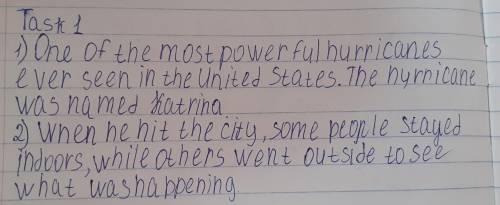 Task 1
1) One of the most powerful hurricanes
ever seen in the United States. The hyrricane
was named Katrina
2) When he hit the city, some people stayed
indoors, while others went outside to see
what was happening